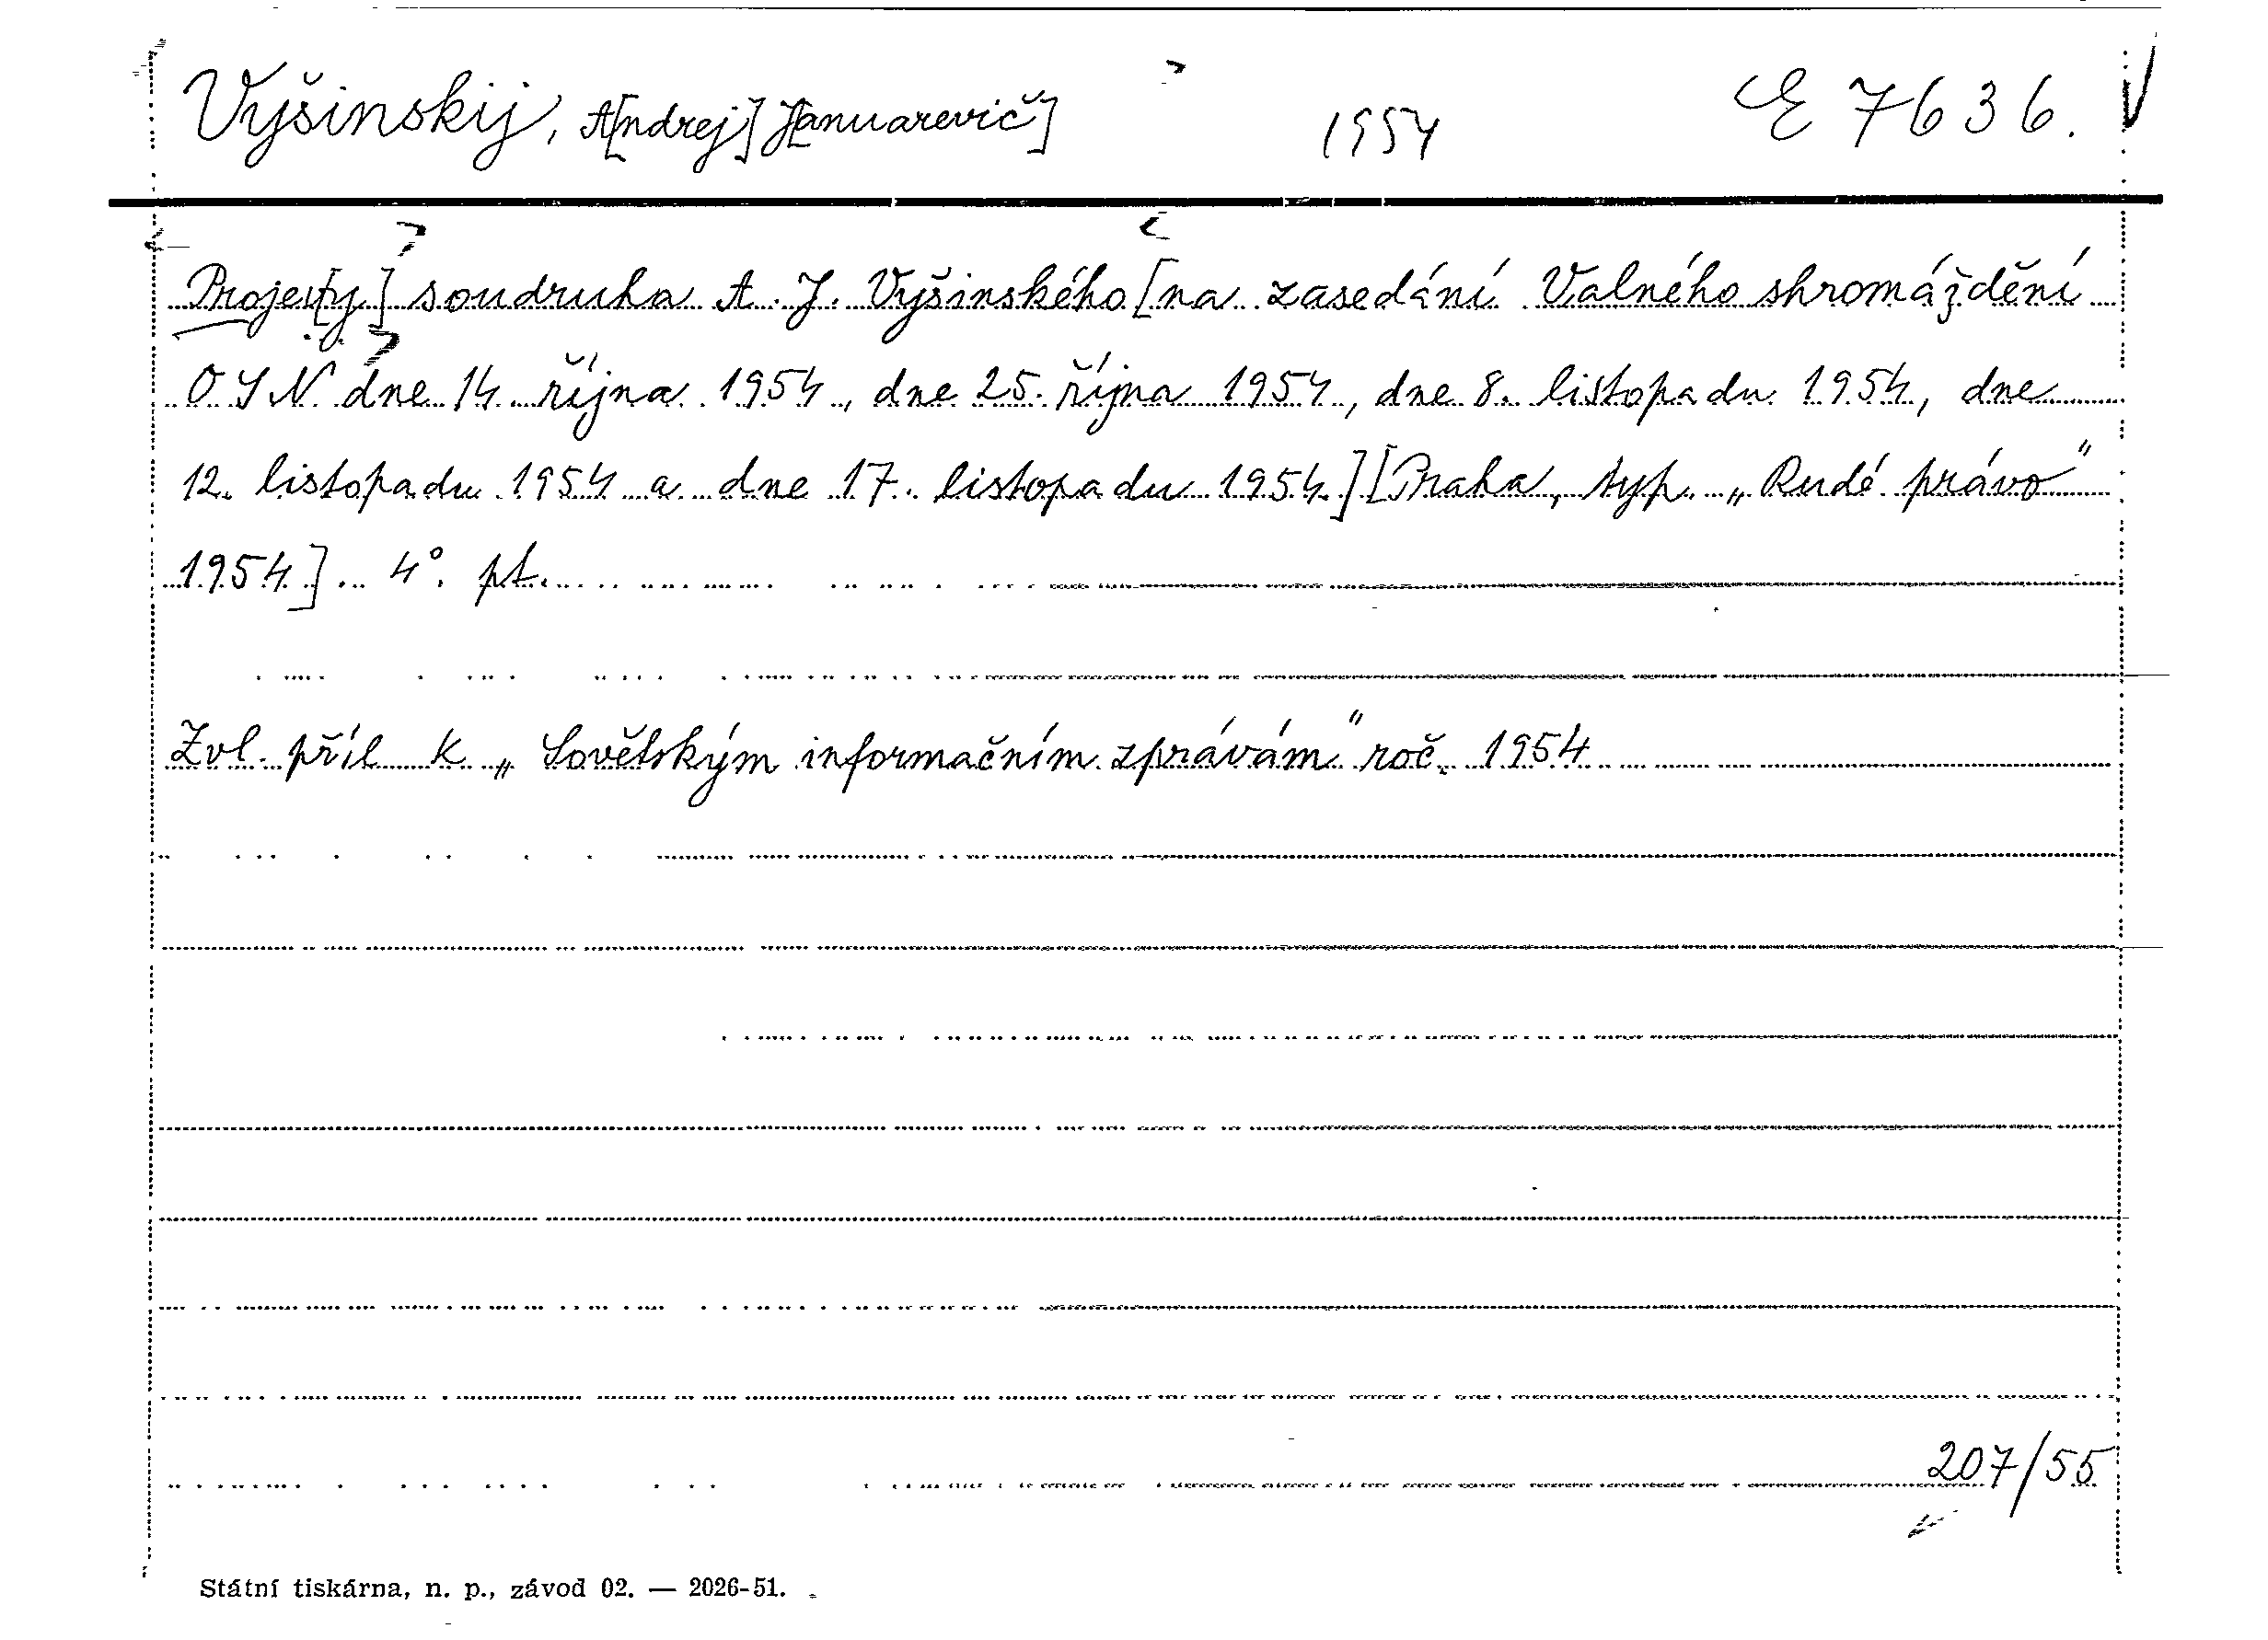 Vyšinskij, A[ndrej] J[anuarevič] 1954 E 7636.
Projev[y] soudruha A. J. Vyšinského [na zasedání Valného shromáždění
OSN dne 14. října 1954, dne 25. října 1954, dne 8. listopadu 1954, dne
12. listopadu 1954 a dne 17. listopadu 1954.] [Praha, typ. „Rudé právo"
1954]. 4°. pt.
Zvl. příl k „Sovětským informačním zprávám" roč. 1954
207/55
Státní tiskárna, n. p., závod 02. — 2026-51.